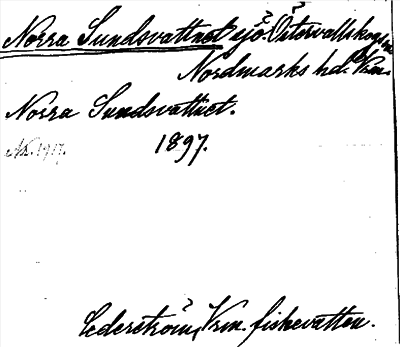 Norra Sundsvattnet sjö. Östervallskogs sn
Nordmarks hd. Vrm.
Norra Sundsvattnet.
1897.
Cederström, Vrm. fiskevatten.